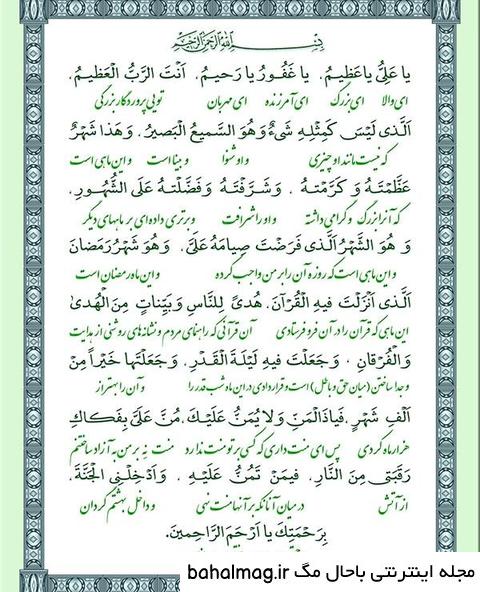 بِسْمِ اللهِ الرَّحْمنِ الرَّحيمِ
يا عَلِيُّ يا عَظيمُ، يا غَفُورُ يا رَحيمُ، اَنْتَ الرَّبُّ الْعَظيمُ،
ای والا ای بزرگ ای آمرزنده ای مهربان تویی پروردگار بزرگی
اَلَّذی لَیْسَ کَمِثْلِهِ شَیْءٌ وَهُوَ السَّمیعُ الْبَصیرُ، وَهَذا شَهْرٌ
که نیست مانند او چیزی و او شنوا و بینا است و این ماهی است
عَظَّمْتَهُ وَ کَرَّمْتَهُ ، وَ شَرَّفْتَهُ وَ فَضَّلْتَهُ عَلَی الشُّهُورِ،
که آنرا بزرگ و گرامی داشته و او را شرافت و برتری داده ای بر ماههای دیگر
وَ هُوَ الشَّهْرُ الَّذی فَرَضْتَ صِیامَهُ عَلَیَّ، وَ هُوَ شَهْرُ رَمَضانَ
و این ماهی است که روزه آن را بر من واجب کرده و این ماه رمضان است
اَلَّذی اَنْزَلْتَ فیهِ الْقُرْآنَ، هُدیً لِلنّاسِ وَ بَیِّناتٍ مِنَ الْهُدیٰ
این ماهی که قرآن را در آن فرو فرستادی آن قرآنی که راهنمای مردم و نشانه های روشنی از هدایت
وَالْفُرْقانِ ، وَ جَعَلْتَ فیهِ لَیْلَةَ الْقَدْرِ، وَ جَعَلْتَها خَیْراً مِنْ
و جدا ساختن (میان حق و باطل) است و قرار دادی در این ماه شب قدر را و آن را بهتر از
اَلْفِ شَهْرٍ، فَیاذَالْمَنِّ وَ لا یُمَنُّ عَلَیْكَ، مُنَّ عَلَیَّ بِفَکاكِ
هزار ماه کردی پس ای منت داری که کسی بر تو منت ندارد منت نه بر من به آزاد ساختنم
رَقَبَتی مِنَ النّارِ، فیمَنْ تَمُنُّ عَلَیْهِ ، وَ اَدْخِلْنِی الْجَنَّةَ،
از آتش در میان آنانکه بر آنها منت نهی و داخل بهشتم گردان
بِرَحْمَتِكَ یا اَرْحَمَ الرّاحِمینَ.
مجله اینترنتی باحال مگ bahalmag.ir